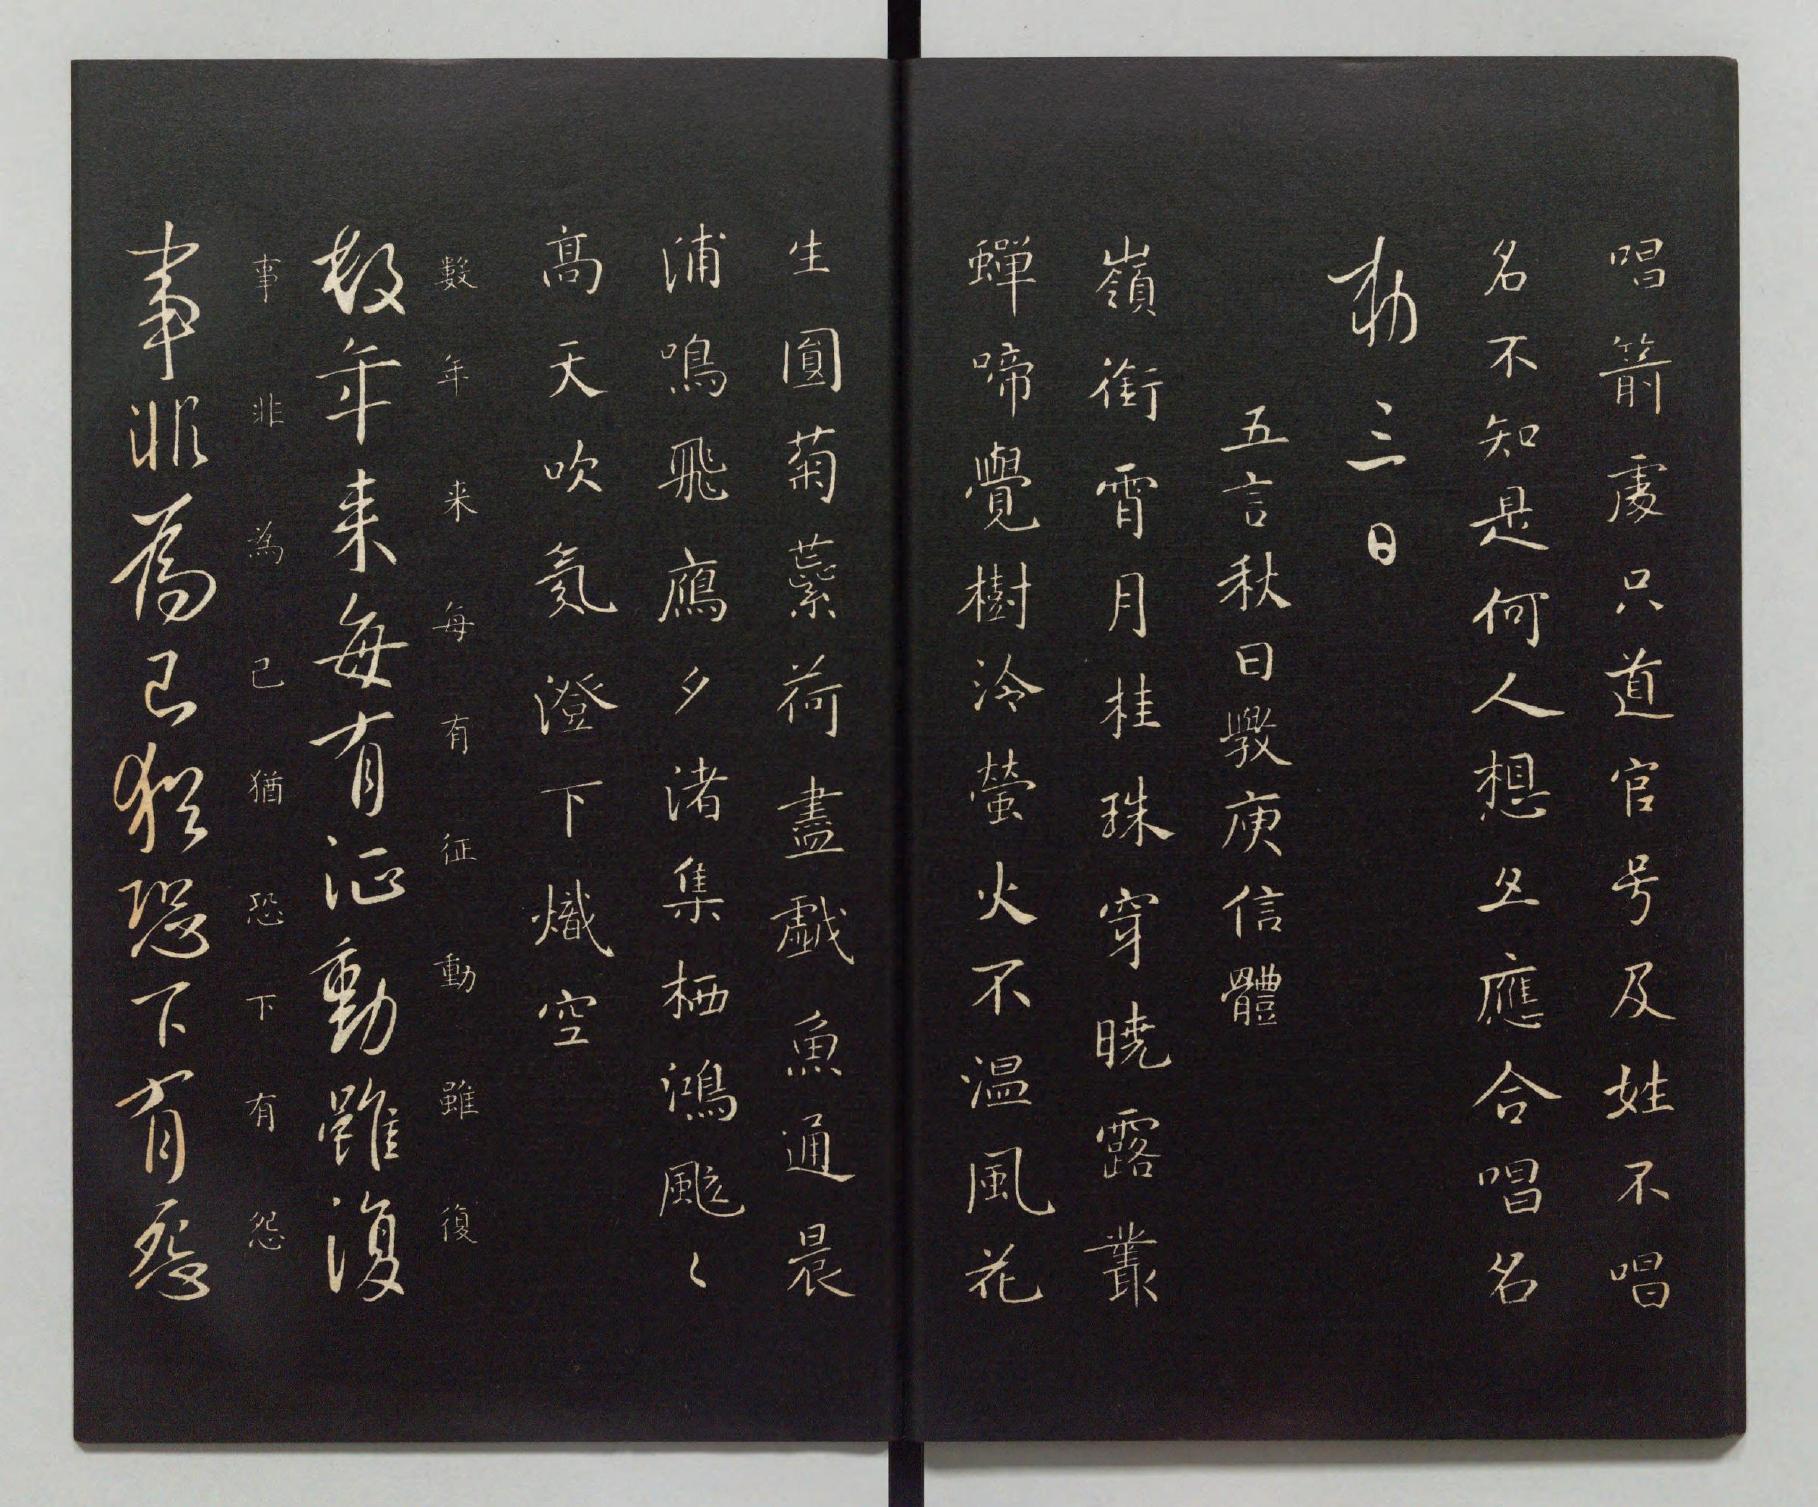 唱箭處只道官号及姓不唱
名不知是何人想必應合唱名
勅
三日
五言秋日斅庾信體
嶺銜宵月桂珠穿曉露叢
蟬啼覺樹冷螢火不温風花
生圓菊蘂荷盡戯魚通晨
浦鳴飛鴈夕渚集栖鴻颷〻
高天吹氛澄下熾空
數年来每有征動雖復
數年来每有征動雖復
事非為己猶恐下有怨
事非為己猶恐下有怨